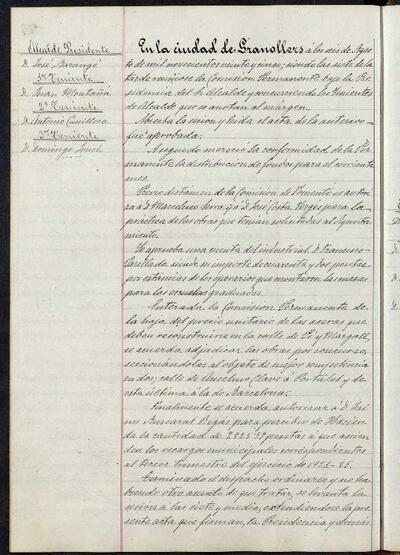 Alcalde Presidente
D. José Barangé
1er Teniente
D. Juan Montaña
2º Teniente
D. Antonio Cumellas
3er Teniente
D. Domingo
En la ciudad de Granollers á los seis de Agos-
to de mil novecientos veinte y cinco; siendo las siete de la
tarde reunióse la Comisión Permanente bajo la Pre-
sidencia del Sr. Alcalde y concurriendo los Tenientes
de Alcalde que se anotan al márgen.
Abierta la sesion y leida el acta de la anterior
fué aprobada.
Acto seguido mereció la conformidad de la Per-
manente la distribución de fondos para el corriente
mes.
Previo dictamen de la Comisión de Fomento se autori-
za á D. Marcelino Serra y á D. José Costa Vergés para la
práctica de las obras que tenian solicitadas al Ayunta-
miento.
Se aprueba una cuenta del industrial D. Francisco
Carellada siendo su importe de cuarenta y dos pesetas
por estancias de los operarios que montaron las mesas
para las escuelas graduadas.
Enterada la Comisión Permanente de
la hoja del precio unitario de las aceras que
deben reconstruirse en la calle de Pi y Margall,
se acuerda adjudicar las obras por concurso,
seccionándolas al objeto de mejor competencia
en dos; calle de Anselmo Clavé á Portalet y de
esta última á la de Barcelona.
Finalmente se acuerda autorizar á D. Jai-
me Buscarat Regás para percibir de Hacien-
da la cantidad de pesetas á que ascien-
den los recargos municipales correspondientes
al tercer trimestre del ejercicio de 1924-25.
Terminado el despacho ordinario y no ha-
biendo otro asunto de que tratar, se levanta la
sesión á las siete y media, extendiéndose la pre-
sente acta que firman, la Presidencia y demás